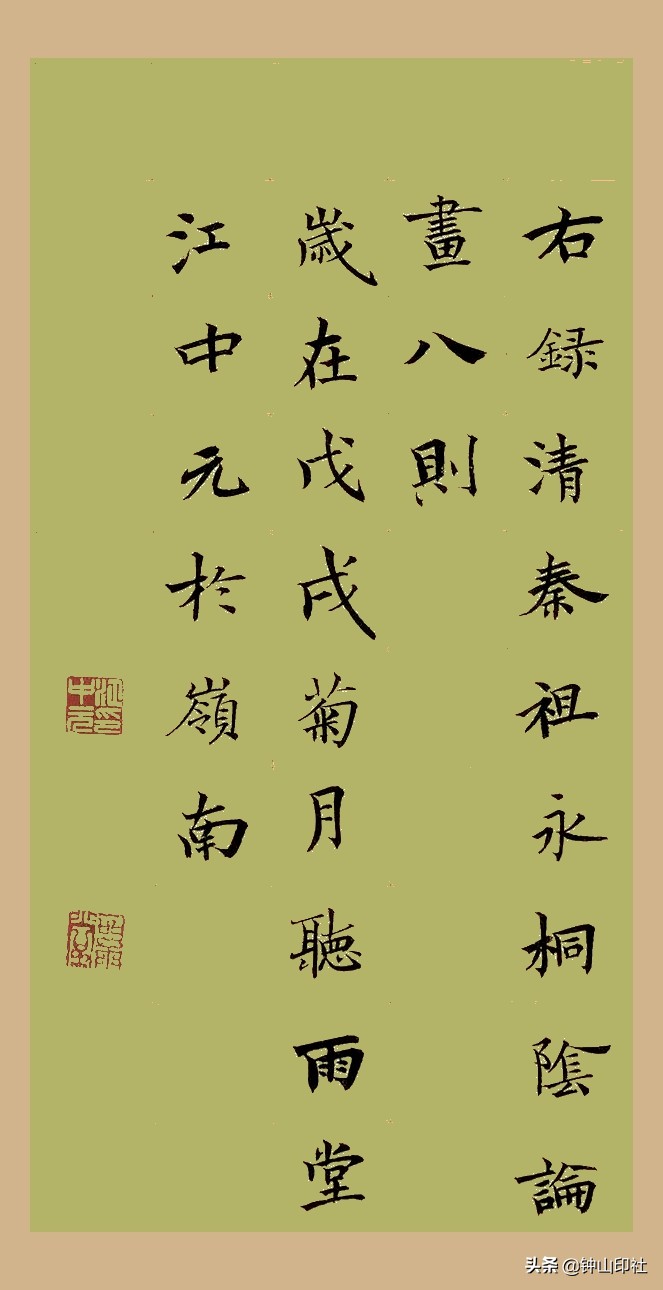 右録清秦祖永桐陰論
畫八則
歲在戊戌菊月聽雨堂
江中元於嶺南
江中元印
头条 @钟山印社